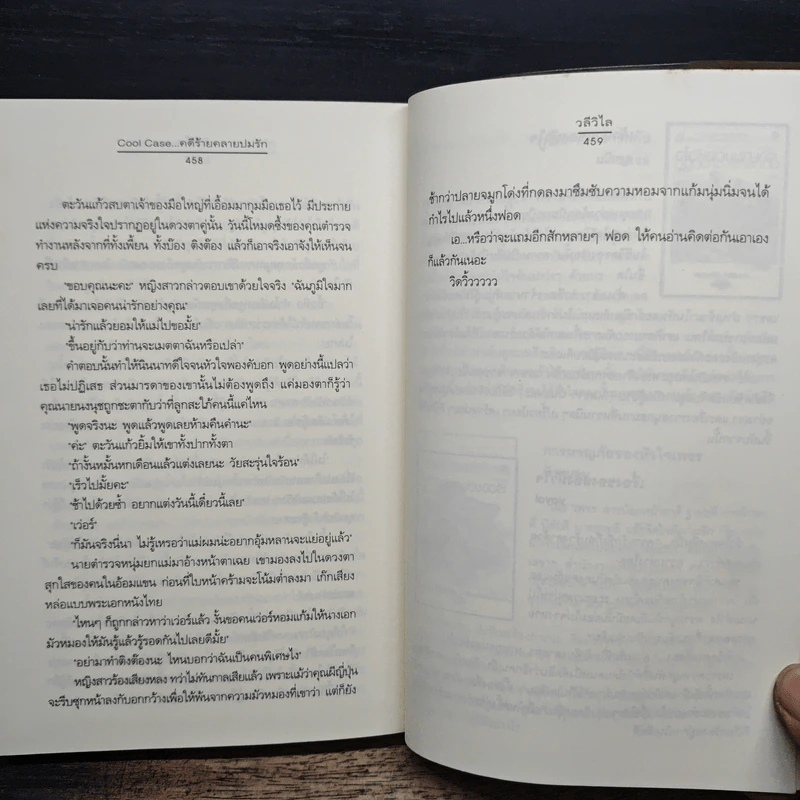 Cool Case...คดีร้ายคลายปมรัก
458
ตะวันแก้วสบตาเจ้าของมือใหญ่ที่เอื้อมมากุมมือเธอไว้ มีประกาย
แห่งความจริงใจปรากฏอยู่ในดวงตาคู่นั้น วันนี้โหมดซึ้งของคุณตำรวจ
ทำงานหลังจากที่ทั้งเพี้ยน ทั้งบ๊อง ติงต๊อง แล้วก็เอาจริงเอาจังให้เห็นจน
ครบ
"ขอบคุณนะคะ" หญิงสาวกล่าวตอบเขาด้วยใจจริง "ฉันภูมิใจมาก
เลยที่ได้มาเจอคนน่ารักอย่างคุณ"
"น่ารักแล้วยอมให้แม่ไปขอมั้ย"
"ขึ้นอยู่กับว่าท่านจะเมตตาฉันหรือเปล่า"
คำตอบนั้นทำให้นินนาทดีใจจนหัวใจพองคับอก พูดอย่างนี้แปลว่า
เธอไม่ปฏิเสธ ส่วนมารดาของเขานั้นไม่ต้องพูดถึง แค่มองตาก็รู้ว่า
คุณนายนงนุชถูกชะตากับว่าที่ลูกสะใภ้คนนี้แค่ไหน
"พูดจริงนะ พูดแล้วพูดเลยห้ามคืนคำนะ"
"ค่ะ" ตะวันแก้วยิ้มให้เขาทั้งปากทั้งตา
"ถ้างั้นหมั้นหกเดือนแล้วแต่งเลยนะ วัยสะรุ่นใจร้อน"
"เร็วไปมั้ยคะ"
"ช้าไปด้วยซ้ำ อยากแต่งวันนี้เดี๋ยวนี้เลย"
"เว่อร์"
"ก็มันจริงนี่นา ไม่รู้เหรอว่าแม่ผมน่ะอยากอุ้มหลานจะแย่อยู่แล้ว"
นายตำรวจหนุ่มยกแม่มาอ้างหน้าตาเฉย เขามองลงไปในดวงตา
สุกใสของคนในอ้อมแขน ก่อนที่ใบหน้าคร้ามจะโน้มต่ำลงมา เก๊กเสียง
หล่อแบบพระเอกหนังไทย
"ไหนๆ ก็ถูกกล่าวหาว่าเว่อร์แล้ว งั้นขอคนเว่อร์หอมแก้มให้นางเอก
มัวหมองให้มันรู้แล้วรู้รอดกันไปเลยดีมั้ย"
"อย่ามาทำติงต๊องนะ ไหนบอกว่าฉันเป็นคนพิเศษไง"
หญิงสาวร้องเสียงหลง ทว่าไม่ทันกาลเสียแล้ว เพราะแม้ว่าคุณผีญี่ปุ่น
จะรีบซุกหน้าลงกับอกกว้างเพื่อให้พ้นจากความมัวหมองที่เขาว่า แต่ก็ยัง
วลีวิไล
459
ช้ากว่าปลายจมูกโด่งที่กดลงมาซึมซับความหอมจากแก้มนุ่มนิ่มจนได้
กำไรไปแล้วหนึ่งฟอด
เอ...หรือว่าจะแถมอีกสักหลายๆ ฟอด ให้คนอ่านคิดต่อกันเอาเอง
ก็แล้วกันเนอะ
วิดวิ้ววววว